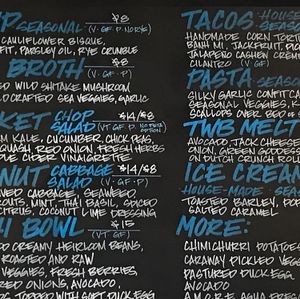 SEASONAL $8
(V·GF·P·NO RYE)
CAULIFLOWER BISQUE,
FIT, PARSLEY OIL, RYE CRUMBLE
BROTH $8
(V·GF·P)
WILD SHIITAKE MUSHROOM
CRAFTED SEA VEGGIES, GARLIC
KET CHOP $14/$8
SALAD (V·GF·P NO
OPTION)
KALE, CUCUMBER, CHICKPEAS,
SQUASH, RED ONION, FRESH HERBS
CIDER VINAIGRETTE
NUT CABBAGE $14/$8
SALAD (V·GF·P)
CABBAGE, SEAWEED,
SPROUTS, MINT, THAI BASIL, SPICED
CITRUS, COCONUT LIME DRESSING
BOWL $15
(V·GF)
CREAMY HEIRLOOM BEANS,
ROASTED AND RAW
VEGGIES, FRESH BERRIES,
RED ONIONS, AVOCADO,
TOPPED WITH SOFT DUCK EGG
TACOS HOUSE
SEASO
HANDMADE CORN TORTI
BANH MI, JACKFRUIT, PIC
JALAPEÑO CASHEN CREME
CILANTRO (V·GF)
PASTA SEASON
SILKY GARLIC CONFIT CA
SEASONAL VEGGIES, K
SCALLOPS OVER BED OF
TWB MELT
AVOCADO, JACK CHEESE
ONION, GREEN GODDESS
ON DUTCH CRUNCH ROLL
ICE CREAM
HOUSE-MADE · SEA
TOASTED BARLEY, POP
SALTED CARAMEL
MORE:
CHIMICHURRI POTATOES
CARAWAY PICKLED VEGG
PASTURED DUCK EGG
AVOCADO